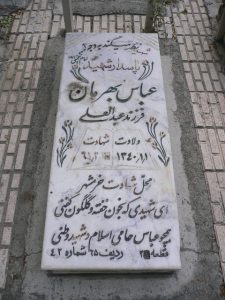 پاسدار شهید
عباس بهرمان
فرزند عبدالعلی
ولادت شهادت
۱۳۴۰/۱/۱
محل شهادت خرمشهر
ای شهیدی که بخون خفته و گلگون کفنی
عباس حامی اسلام و شهید وطنی
قطعه ردیف ۲۵ شماره ۴۲